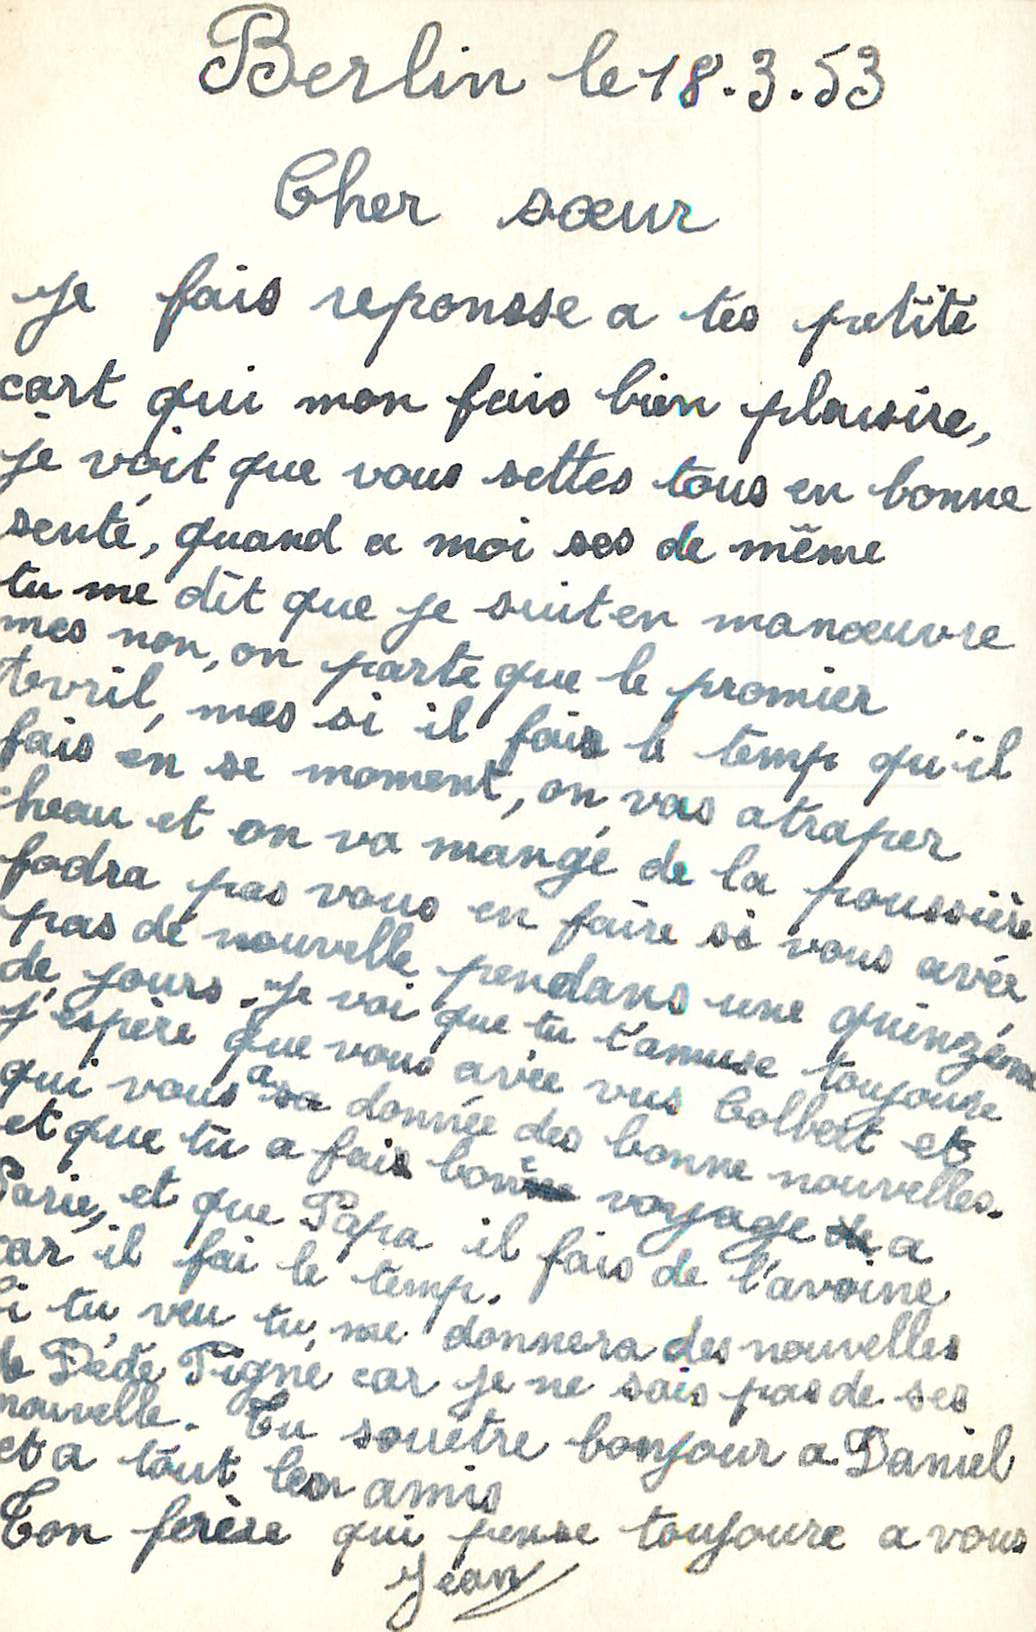 Berlin le 18.3.53
Cher sœur
Je fais reponsse a tes petite
cart qui mon fais bien plaisire,
je voit que vous settes tous en bonne
senté, quand a moi ses de même
tu me dit que je suit en manœuvre
mes non, on parte que le promier
Avril, mes si il fais le temp qu'il
fais en se moment, on vas atraper
cheau et on va mangé de la poussière
fodra pas vous en faire si vous avér
pas de nouvelle pendans une quinzéne
de jours. Je voi que tu t'amuse toujoure
j'espère que vous avée vus Colbert et
qui vous a donnée des bonne nouvelles.
et que tu a fais bon voyage a
Parie, et que Papa il fais de l'avoine
car il fai le temp.
Si tu veu tu me donnera des nouvelles
de Dédé Pigné car je ne sais pas de ses
nouvelle. Tu souetre bonjour a Daniel
et a tout les amis
Ton ferère qui pense toujoure a vous
Jean